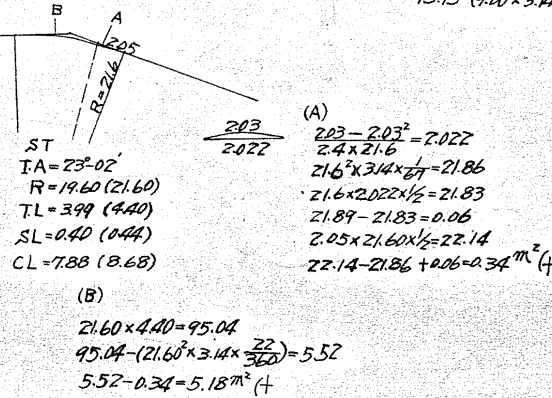 B
A
2.05
R=21.6
ST
I.A=23°-02'
R=19.60 (21.60)
T.L=3.99 (4.40)
S.L=0.40 (0.44)
CL=7.88 (8.68)
2.03
2.022
(A)
2.03-2.03²
2.4×21.6 =2.022
21.6²×3.14× =21.86
21.6×2.022×½=21.83
21.89-21.83=0.06
2.05×21.60×½=22.14
22.14-21.86+0.06=0.34m²(+
(B)
21.60×4.40=95.04
95.04-(21.60²×3.14×22/360)=5.52
5.52-0.34=5.18m²(+